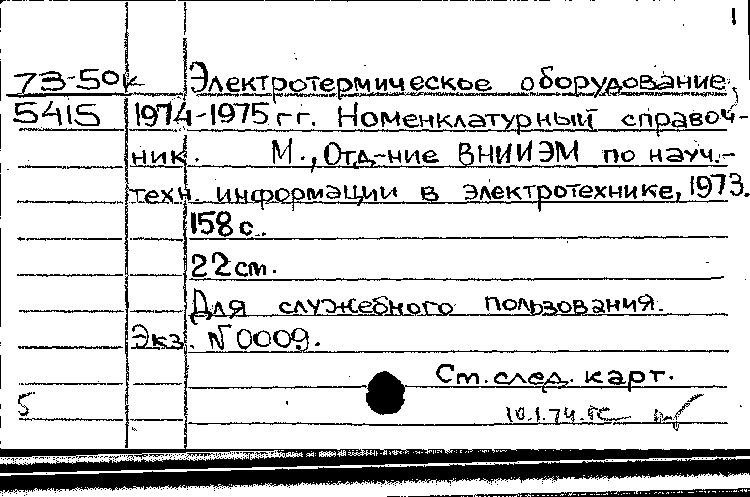 1
73-50к Электротермическое оборудование,
5415 1974-1975 гг. Номенклатурный справоч-
ник. М., Отд-ние ВНИИЭМ по науч.-
техн. информации в электротехнике, 1973.
158 с.
22 см.
Для служебного пользования.
Экз. N 0009.
См. след. карт.
5 10.1.74.